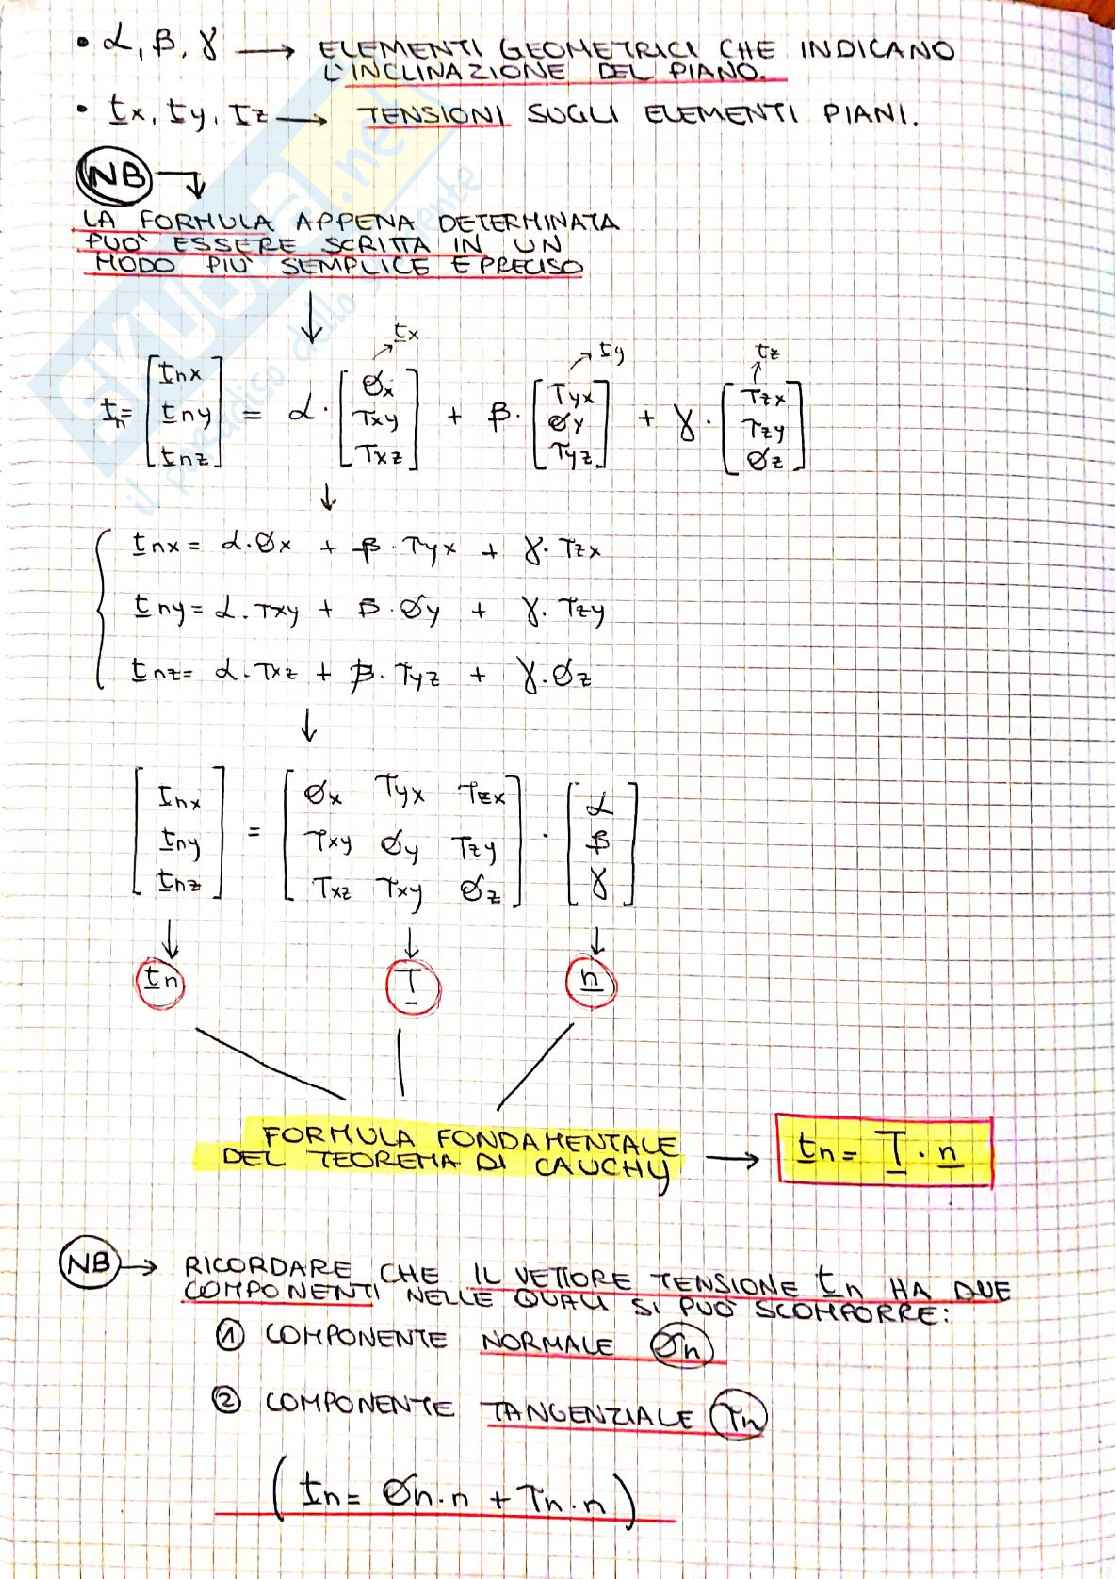 • α, β, γ → ELEMENTI GEOMETRICI CHE INDICANO
L'INCLINAZIONE DEL PIANO.
• tx, ty, tz → TENSIONI SUGLI ELEMENTI PIANI.
NB →
LA FORMULA APPENA DETERMINATA
PUO' ESSERE SCRITTA IN UN
MODO PIU' SEMPLICE E PRECISO
↓
→ tx → ty ↑ tz
tn = [tnx tny tnz] = α · [σx τxy τxz] + β · [τyx σy τyz] + γ · [τzx τzy σz]
↓
tnx = α·σx + β·τyx + γ·τzx
tny = α·τxy + β·σy + γ·τzy
tnz = α·τxz + β·τyz + γ·σz
↓
[tnx] = [σx τyx τzx] · [α]
[tny] [τxy σy τzy] [β]
[tnz] [τxz τxy σz] [γ]
↓ ↓ ↓
tn T n
FORMULA FONDAMENTALE
DEL TEOREMA DI CAUCHY → tn = T · n
NB → RICORDARE CHE IL VETTORE TENSIONE tn HA DUE
COMPONENTI NELLE QUALI SI PUO' SCOMPORRE:
① COMPONENTE NORMALE σn
② COMPONENTE TANGENZIALE τn
(tn = σn·n + τn·n)